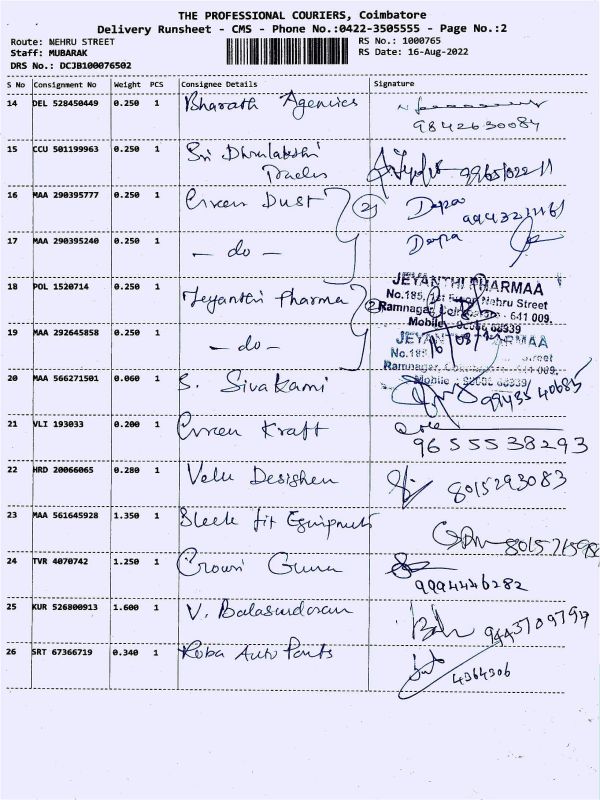 THE PROFESSIONAL COURIERS, Coimbatore
Delivery Runsheet - CMS - Phone No.:0422-3505555 - Page No.:2
Route: NEHRU STREET
RS No.: 1000765
Staff: MUBARAK
RS Date: 16-Aug-2022
DRS No.: DCJB100076502
S No Consignment No Weight PCS Consignee Details Signature
14 DEL 528450449 0.250 1 Bharath Agencies
9842630084
15 CCU 501199963 0.250 1 Sri Dhanalakshi
Traders
16 MAA 290395777 0.250 1 Green Dust (2) Deepa
17 MAA 290395240 0.250 1 - do - Deepa
18 POL 1520714 0.250 1 Jeyanthi Pharma (2) JEYANTHI PHARMAA
No.185, 1st Floor, Nehru Street
Ramnagar, Coimbatore - 641 009.
Mobile
19 MAA 292645858 0.250 1 - do - JEYANTHI PHARMAA
No.185 Street
Ramnagar, Coimbatore - 641 009.
Mobile
20 MAA 566271501 0.060 1 S. Sivakami 9943540685
21 VLI 193033 0.200 1 Green Kraft
9655538293
22 HRD 20066065 0.280 1 Velu 8015293083
23 MAA 561645928 1.350 1 Sleek fit Equipments
24 TVR 4070742 1.250 1 Crown
9994446282
25 KUR 526800913 1.600 1 V. Balasundaram
9443709794
26 SRT 67366719 0.340 1 Roba Auto Parts
4364306